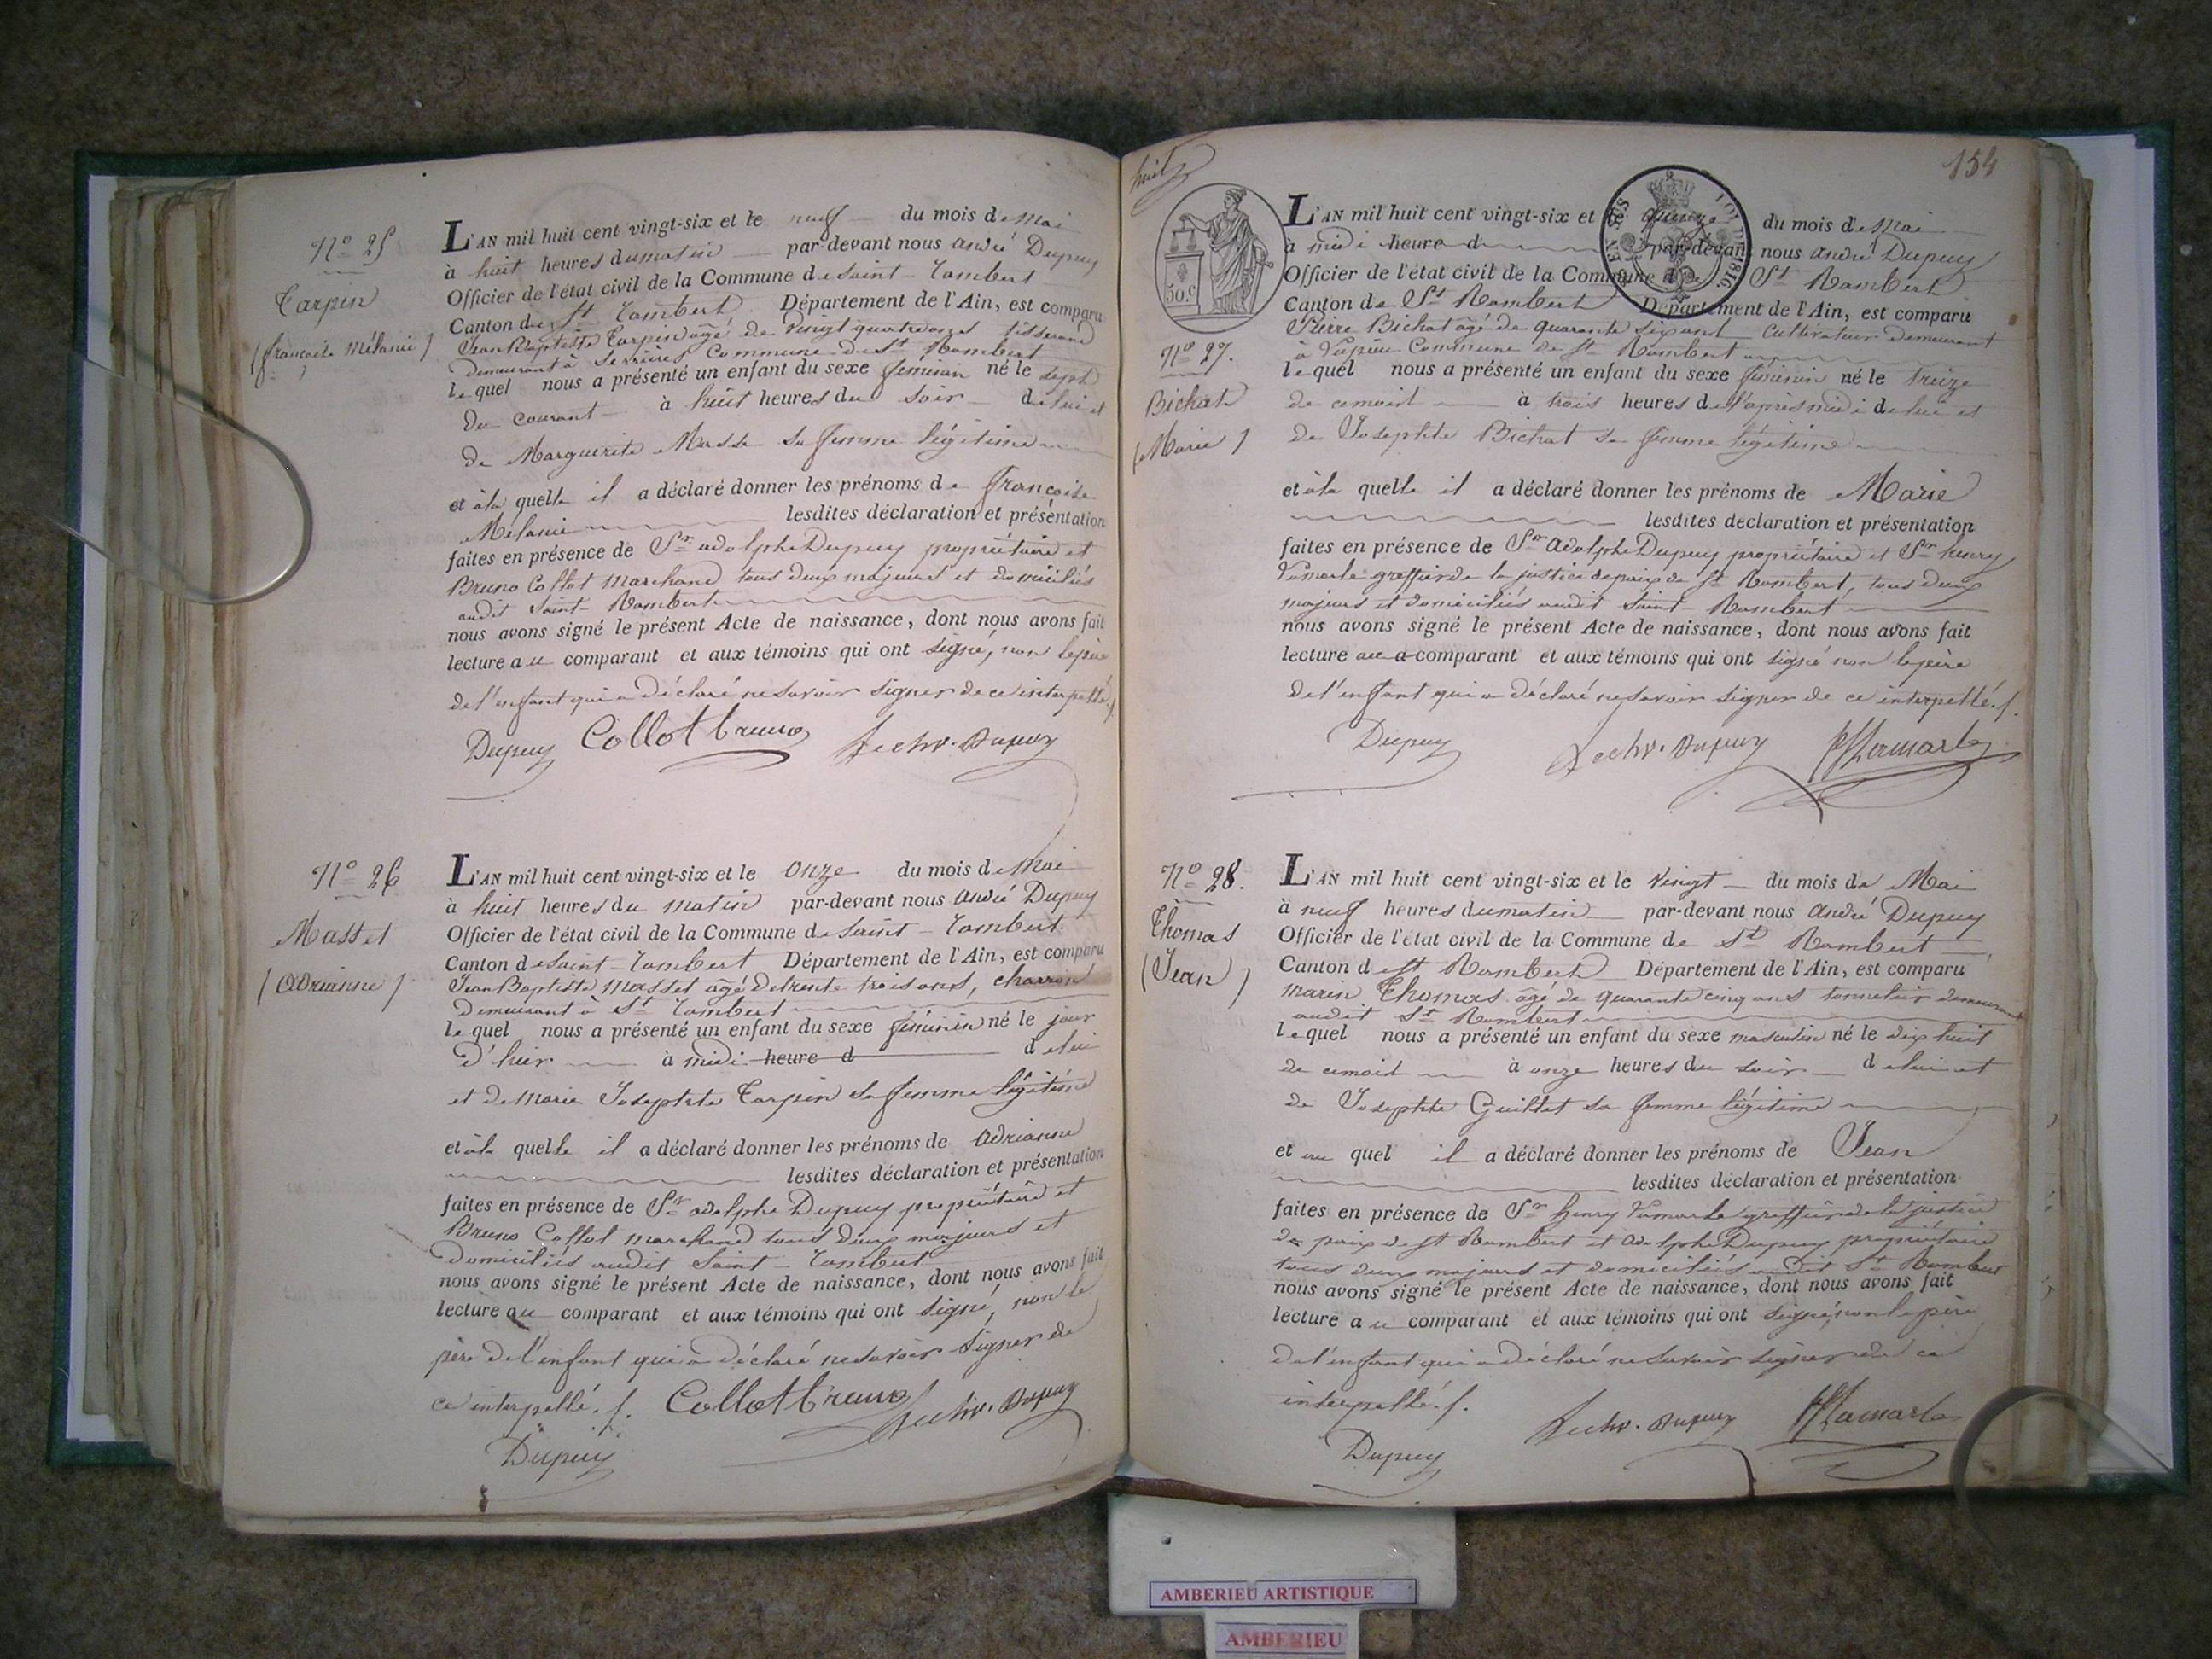 N.º 25
Tarpin
(françoise Mélanie)
L'AN mil huit cent vingt-six et le neuf du mois de Mai
à huit heures du matin par-devant nous andré Dupuy
Officier de l'état civil de la Commune de Saint-Rambert
Canton de St Rambert Département de l'Ain, est comparu
Jean Baptiste Tarpin âgé de vingt quatre ans tisserand
demeurant à Serrières Commune de St Rambert
lequel nous a présenté un enfant du sexe féminin né le sept
du courant à huit heures du soir de lui et
de Marguerite Masse sa femme légitime
et à la quelle il a déclaré donner les prénoms de françoise
Mélanie lesdites déclaration et présentation
faites en présence de Sr adolphe Dupuy propriétaire et
Bruno Collot Marchand tous deux majeurs et domiciliés
audit Saint-Rambert
nous avons signé le présent Acte de naissance, dont nous avons fait
lecture au comparant et aux témoins qui ont signé, non le père
de l'enfant qui a déclaré ne savoir signer de ce interpellé./.
Dupuy Collot bruno Dupuy
N.º 26
Masset
(adrianne)
L'AN mil huit cent vingt-six et le onze du mois de Mai
à huit heures du matin par-devant nous andré Dupuy
Officier de l'état civil de la Commune de Saint-Rambert
Canton de Saint-Rambert Département de l'Ain, est comparu
Jean Baptiste Masset agé de trente trois ans, charron
demeurant à St Rambert
lequel nous a présenté un enfant du sexe féminin né le jour
d'hier à midi heure d de lui
et de Marie Josephte Tarpin sa femme légitime
et à la quelle il a déclaré donner les prénoms de adrianne
lesdites déclaration et présentation
faites en présence de Sr adolphe Dupuy propriétaire et
Bruno Collot marchand tous deux majeurs et
domiciliés audit Saint-Rambert
nous avons signé le présent Acte de naissance, dont nous avons fait
lecture au comparant et aux témoins qui ont signé, non le
père de l'enfant qui a déclaré ne savoir signer de
ce interpellé./. Collot bruno Dupuy
Dupuy
huit
154
50.c
1816
N.º 27.
Bichat
(Marie)
L'AN mil huit cent vingt-six et le quinze du mois de Mai
à midi heure d par-devant nous andré Dupuy
Officier de l'état civil de la Commune de St Rambert
Canton de St Rambert Département de l'Ain, est comparu
Pierre Bichat âgé de quarante six ans Cultivateur demeurant
à Vupieu Commune de St Rambert
lequel nous a présenté un enfant du sexe féminin né le treize
de ce mois à trois heures de l'après midi de lui et
de Josephte Bichat sa femme légitime
et à la quelle il a déclaré donner les prénoms de Marie
lesdites déclaration et présentation
faites en présence de Sr adolphe Dupuy propriétaire et Sr henry
Lamarle greffier de la justice de paix de St Rambert, tous deux
majeurs et domiciliés audit Saint-Rambert
nous avons signé le présent Acte de naissance, dont nous avons fait
lecture au comparant et aux témoins qui ont signé non le père
de l'enfant qui a déclaré ne savoir signer de ce interpellé./.
Dupuy Dupuy Lamarle
N.º 28.
Thomas
(Jean)
L'AN mil huit cent vingt-six et le vingt du mois de Mai
à neuf heures du matin par-devant nous andré Dupuy
Officier de l'état civil de la Commune de St Rambert
Canton de St Rambert Département de l'Ain, est comparu
Marin Thomas âgé de quarante cinq ans tonnelier demeurant
audit St Rambert
lequel nous a présenté un enfant du sexe masculin né le dix huit
de ce mois à onze heures du soir de lui et
de Josephte Guillet sa femme légitime
et au quel il a déclaré donner les prénoms de Jean
lesdites déclaration et présentation
faites en présence de Sr henry Lamarle greffier de la justice
de paix de St Rambert et adolphe Dupuy propriétaire
tous deux majeurs et domiciliés audit St Rambert
nous avons signé le présent Acte de naissance, dont nous avons fait
lecture au comparant et aux témoins qui ont signé, non le père
de l'enfant qui a déclaré ne savoir signer de ce
interpellé./.
Dupuy Dupuy Lamarle
AMBERIEU ARTISTIQUE
AMBERIEU